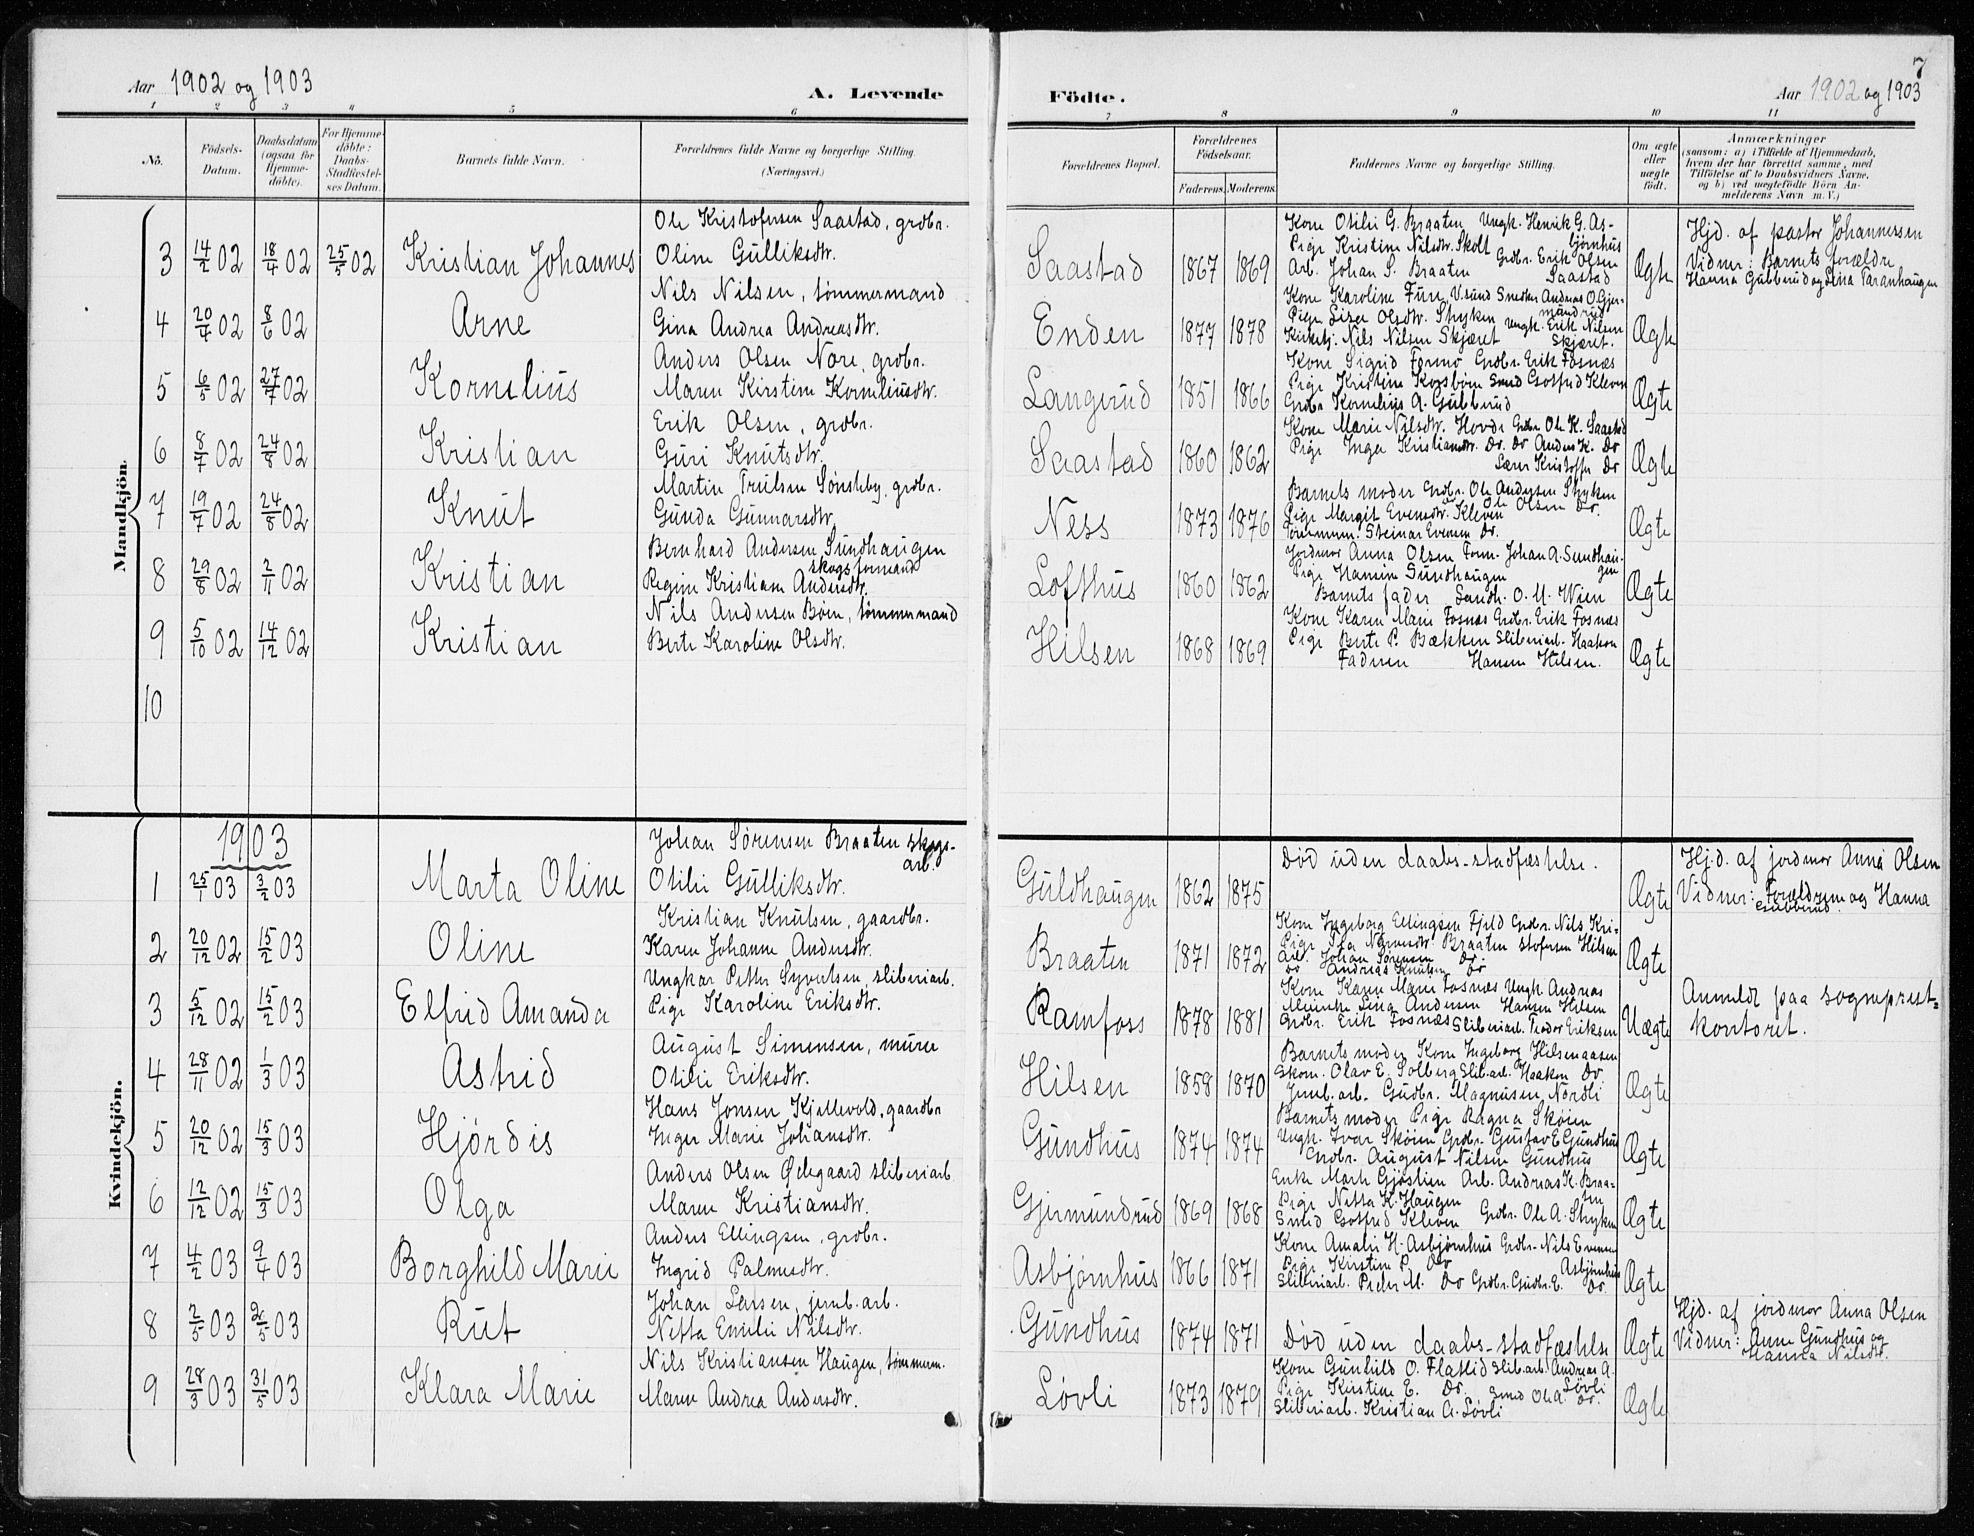 7
Aar 1902 og 1903
A. Levende
Födte.
Aar 1902 og 1903
1 2 3 4 5 6 7 8 9 10 11
No.
Födsels-Datum.
Daabsdatum (ogsaa for Hjemme-döbte).
For Hjemme-döbte: Daabs-Stadfæstel-ses Datum.
Barnets fulde Navn.
Forældrenes fulde Navne og borgerlige Stilling.
(Næringsvei.)
Forældrenes Bopæl.
Forældrenes Födselsaar.
Faderens. Moderens.
Faddernes Navne og borgerlige Stilling.
Om ægte eller uægte födt.
Anmærkninger
(saasom: a) i Tilfælde af Hjemmedaab,
hvem der har forrettet samme, med
Tilföielse af to Daabsvidners Navne.
og b) ved uægtefödte Börn An-
melderens Navn m. V.)
Mandkjön.
3 14/2 02 18/4 02 25/5 02 Kristian Johannes
Ole Kristofersen Saastad, grdbr.
Oline Gulliksdtr.
Saastad 1867 1869
Kone Otilie G. Braaten Ungk. Henrik G. As-
bjørnhus
Pige Kristine Nilsdtr. Skolt Grdbr. Erik Olsen
Arb. Johan S. Braaten Saastad
Ægte
Hjd. af pastor Johannessen
Vidner: Barnets forældre
Hanna Gubberud og Lina Taranhaugen
4 20/4 02 8/6 02 Arne
Nils Nilsen, tømmermand
Gina Andrea Andreasdtr.
Enden 1877 1878
Kone Karoline Fure, V.sund Snedker Andreas O. Gjer-
mundrud
Pige Lise Olsdtr. Stryken Ungk. Erik Nilsen
Kirketj. Nils Nilsen Skjæret Skjæret.
Ægte
5 6/5 02 27/7 02 Kornelius
Anders Olsen Nore, grdbr.
Maren Kirstine Korneliusdtr.
Langerud 1851 1866
Kone Sigrid Formo Grdbr. Erik Fosnæs
Pige Kristine Korsbøen Smed Gotfred Kleven
Grdbr Kornelius A. Gubberud
Ægte
6 8/7 02 24/8 02 Kristian
Erik Olsen, grdbr.
Guri Knutsdtr.
Saastad 1860 1862
Kone Marie Nilsdtr. Hovde Grdbr Ole K. Saastad
Pige Inger Kristiansdtr. Do. Do Anders K. Do
Lærer Kristoffer Do
Ægte
7 19/7 02 24/8 02 Knut
Martin Trulsen Sønsteby, grdbr.
Gunda Gunnarsdtr.
Ness 1873 1876
Barnets moder Grdbr. Ole Andersen Stryken
Pige Margit Evensdtr. Kleven Do Ole Olsen Do.
Tømmerm. Steinar Evensen Do.
Ægte
8 29/8 02 2/11 02 Kristian
Bernhard Andersen Sundhaugen
skogsformand
Regine Kristiane Andersdtr.
Lofthus 1860 1862
Jordmor Anna Olsen Form. Johan A. Sundhau-
gen
Pige Hansine Sundhaugen
Barnets fader Landh. O. M. Wien
Ægte
9 5/10 02 14/12 02 Kristian
Nils Andersen Børn, tømmermand
Berte Karoline Olsdtr.
Hilsen 1868 1869
Kone Karen Marie Fosnæs Grdbr. Erik Fosnæs
Pige Berte P. Bækken Sliberiarb. Haakon
Faderen Hansen Hilsen.
Ægte
10
Kvindekjön.
1903
1 25/1 03 3/2 03 Marta Oline
Johan Sørensen Braaten skogs-
arb.
Otilie Gulliksdtr.
Guldhaugen 1862 1875
Død uden daabs-stadfæstelse.
Ægte
Hjd. af jordmor Anna Olsen
Vidner: Forældrene og Hanna
Gubberud.
2 20/12 02 15/2 03 Oline
Kristian Knutsen, gaardbr.
Karen Johanne Andersdtr.
Braaten 1871 1872
Kone Ingeborg Ellingsen Fjeld Grdbr. Nils Kri-
Pige Braaten stofersen Hilsen
Arb. Johan Sørensen Do.
Do Andreas Knutsen Do
Ægte
3 5/12 02 15/2 03 Elfrid Amanda
Ungkar Petter Syvertsen, sliberiarb.
Pige Karoline Eriksdtr.
Ramfoss 1878 1881
Kone Karen Marie Fosnæs Ungk Andreas
Meierske Lina Andersen Hansen Hilsen
Grdbr. Erik Fosnæs Sliberiarb. Teodor Eriksen
Uægte
Anmeldt paa sogneprest-
kontoret.
4 28/11 02 1/3 03 Astrid
August Simensen, murer
Otilie Eriksdtr.
Hilsen 1858 1870
Barnets moder Kone Ingeborg Hilsenaasen
Skom. Olav E. Solberg Slib.arb. Haakon Do
Jernb.arb. Gudbr. Magnusen Nordli
Ægte
5 20/12 02 15/3 03 Hjørdis
Hans Jonsen Kjellevold, gaardbr
Inger Marie Johansdtr.
Gundhus 1874 1874
Barnets moder Pige Ragna Skøien
Ungk. Ivar Skøien Grdbr. Gustav E Gundhus
Grdbr. August Nilsen Gundhus
Ægte
6 12/12 02 15/3 03 Olga
Anders Olsen Ødegaard sliberiarb
Maren Kristiansdtr.
Gjermundrud 1869 1868
Enke Marte Gjøstien Arb. Andreas K. Braa-
ten
Pige Netta K. Haugen
Smed Gotfred Kleven Grdbr. Ole A. Stryken
Ægte
7 4/2 03 9/4 03 Borghild Marie
Anders Ellingsen, grdbr.
Ingrid Palmesdtr.
Asbjørnhus 1866 1871
Kone Amalie H. Asbjørnhus Grdbr. Nils Evensen
Pige Kirstine P. Do Asbjørnhus
Sliberiarb. Peder M. Do Grdbr. Gudbr. E. Do.
Ægte
8 2/5 03 2/5 03 Rut
Johan Larsen, jernb.arb.
Netta Emilie Nilsdtr.
Gundhus 1874 1871
Død uden daabs-stadfæstelse
Ægte
Hjd. af jordmor Anna Olsen
Vidner: Anne Gundhus og
Hanna Nilsdtr.
9 28/3 03 31/5 03 Klara Marie
Nils Kristiansen Haugen, tømmerm.
Maren Andrea Andersdtr.
Løvli 1873 1879
Kone Gunhild O. Flatlid Slib.arb. Andreas A.
Løvli
Pige Kirstine E. Do. Smed Ole A. Do.
Sliberiarb. Kristian A. Løvli
Ægte